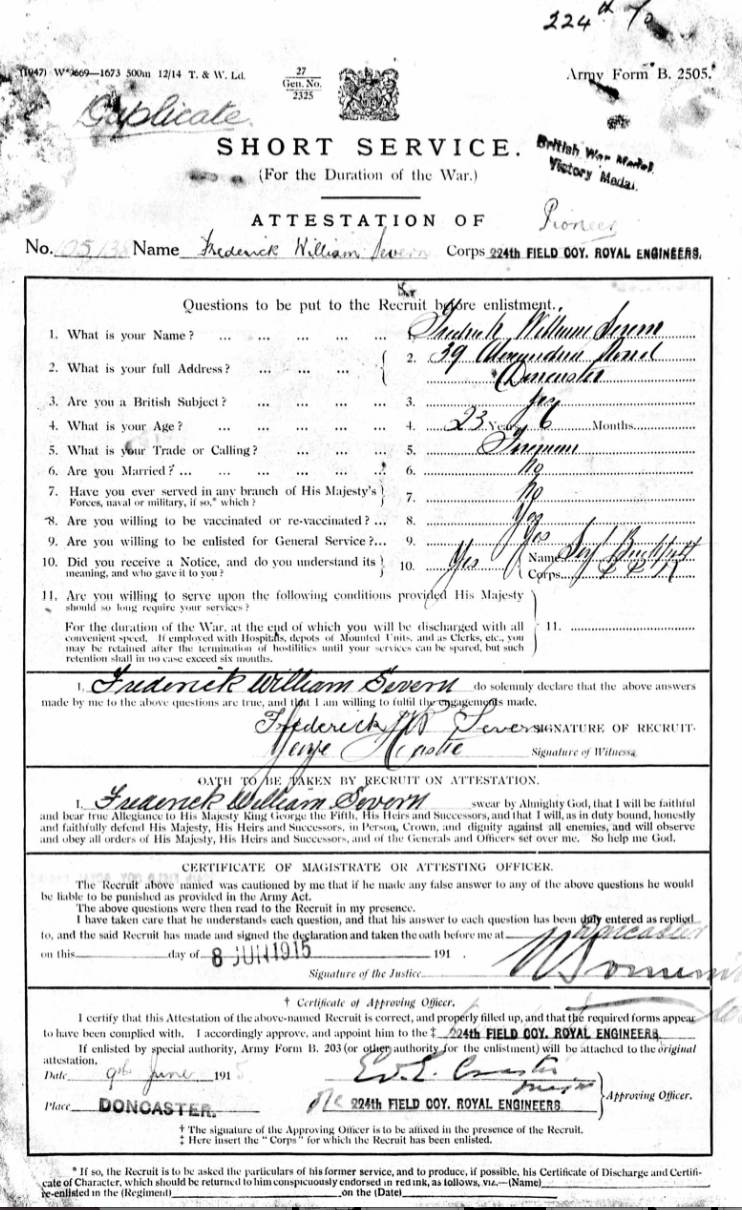 224th
(1047) W 3669—1673 500m 12/14 T. & W. Ld.
27
Gen. No.
2325
Army Form B. 2505.
Duplicate.
SHORT SERVICE.
(For the Duration of the War.)
British War Medal.
Victory Medal.
ATTESTATION OF
Pioneer
No. Name Frederick William Severn Corps 224th FIELD COY. ROYAL ENGINEERS.
Questions to be put to the Recruit before enlistment.
1. What is your Name? ... ... ... ... Frederick William Severn
2. What is your full Address? ... ... ... 2. 39 Alexandra Street
Doncaster
3. Are you a British Subject? ... ... ... 3. Yes
4. What is your Age? ... ... ... ... 4. 23 Years 6 Months.
5. What is your Trade or Calling? ... ... 5.
6. Are you Married? ... ... ... ... ... 6. No
7. Have you ever served in any branch of His Majesty's
Forces, naval or military, if so,* which? 7. No
8. Are you willing to be vaccinated or re-vaccinated? ... 8. Yes
9. Are you willing to be enlisted for General Service? ... 9. Yes
10. Did you receive a Notice, and do you understand its
meaning, and who gave it to you? 10. Yes Name
Corps
11. Are you willing to serve upon the following conditions provided His Majesty
should so long require your services?
For the duration of the War, at the end of which you will be discharged with all
convenient speed. If employed with Hospitals, depots of Mounted Units, and as Clerks, etc., you
may be retained after the termination of hostilities until your services can be spared, but such
retention shall in no case exceed six months.
11.
I, Frederick William Severn do solemnly declare that the above answers
made by me to the above questions are true, and that I am willing to fulfil the engagements made.
Frederick W Severn SIGNATURE OF RECRUIT.
Signature of Witness.
OATH TO BE TAKEN BY RECRUIT ON ATTESTATION.
I, Frederick William Severn swear by Almighty God, that I will be faithful
and bear true Allegiance to His Majesty King George the Fifth, His Heirs and Successors, and that I will, as in duty bound, honestly
and faithfully defend His Majesty, His Heirs and Successors, in Person, Crown, and dignity against all enemies, and will observe
and obey all orders of His Majesty, His Heirs and Successors, and of the Generals and Officers set over me. So help me God.
CERTIFICATE OF MAGISTRATE OR ATTESTING OFFICER.
The Recruit above named was cautioned by me that if he made any false answer to any of the above questions he would
be liable to be punished as provided in the Army Act.
The above questions were then read to the Recruit in my presence.
I have taken care that he understands each question, and that his answer to each question has been duly entered as replied
to, and the said Recruit has made and signed the declaration and taken the oath before me at Doncaster
on this day of 8 JUN 1915 191 .
Signature of the Justice
† Certificate of Approving Officer.
I certify that this Attestation of the above-named Recruit is correct, and properly filled up, and that the required forms appear
to have been complied with. I accordingly approve, and appoint him to the ‡ 224th FIELD COY. ROYAL ENGINEERS.
If enlisted by special authority, Army Form B. 203 (or other authority for the enlistment) will be attached to the original
attestation.
Date 9th June 1915
Place DONCASTER. 224th FIELD COY. ROYAL ENGINEERS
Approving Officer.
† The signature of the Approving Officer is to be affixed in the presence of the Recruit.
‡ Here insert the "Corps" for which the Recruit has been enlisted.
* If so, the Recruit is to be asked the particulars of his former service, and to produce, if possible, his Certificate of Discharge and Certifi-
cate of Character, which should be returned to him conspicuously endorsed in red ink, as follows, viz.—(Name)
re-enlisted in the (Regiment) on the (Date)